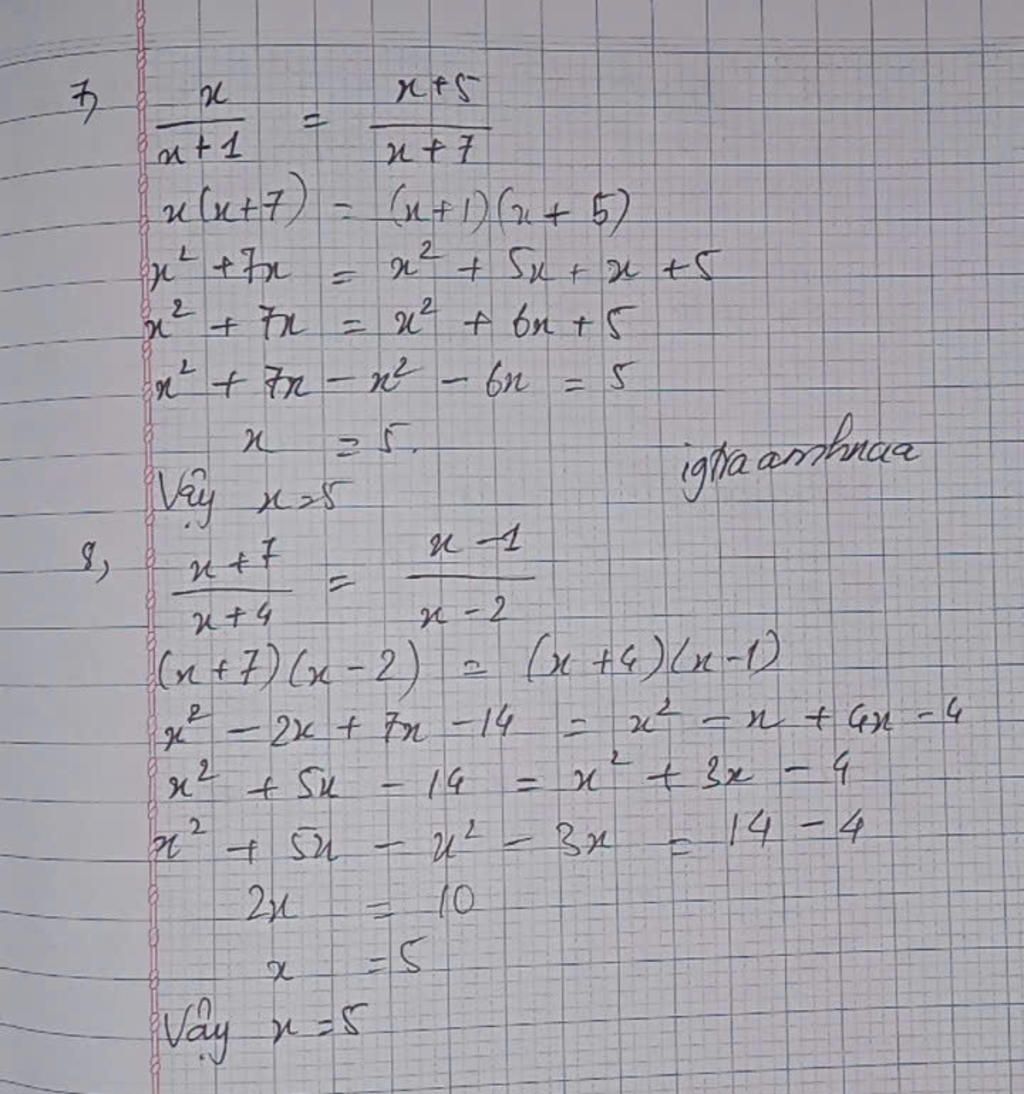 7, x/(x+1) = (x+5)/(x+7)
x(x+7) = (x+1)(x+5)
x² + 7x = x² + 5x + x + 5
x² + 7x = x² + 6x + 5
x² + 7x - x² - 6x = 5
x = 5.
Vậy x = 5
8, (x+7)/(x+4) = (x-1)/(x-2)
(x+7)(x-2) = (x+4)(x-1)
x² - 2x + 7x - 14 = x² - x + 4x - 4
x² + 5x - 14 = x² + 3x - 4
x² + 5x - x² - 3x = 14 - 4
2x = 10
x = 5
Vậy x = 5